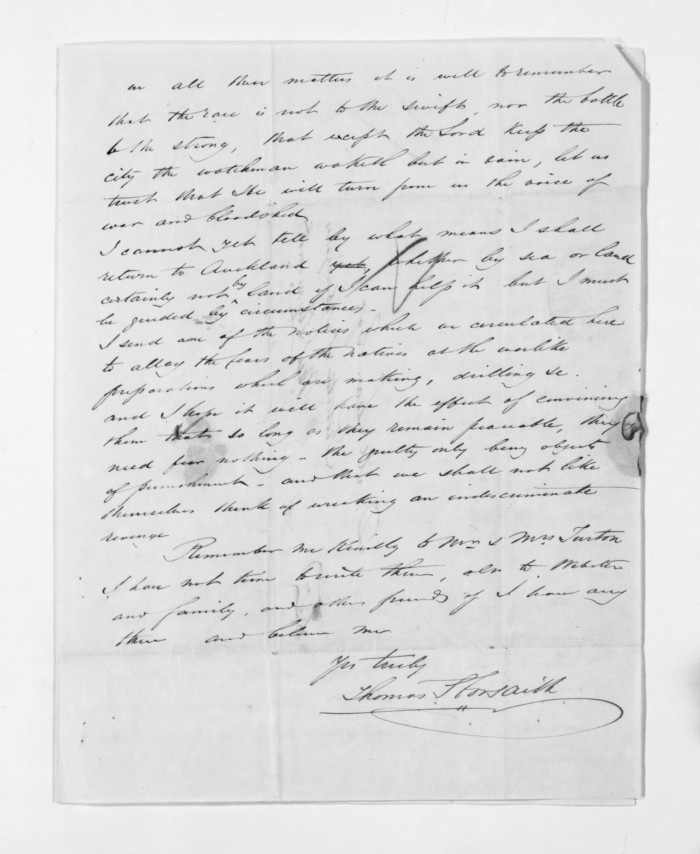 in all these matters it is well to remember
that the race is not to the swift, nor the battle
to the strong, that except the Lord keep the
city the watchman waketh but in vain, let us
trust that He will turn from us the voice of
war and bloodshed
I cannot yet tell by what means I shall
return to Auckland yet, whether by sea or land
certainly not by land if I can help it but I must
be guided by circumstances -
I send one of the notices which we circulated here
to allay the fears of the natives at the warlike
preparations which are making, drilling &c.
and I hope it will have the effect of convincing
them that so long as they remain peaceable, they
need fear nothing - the guilty only being objects
of punishment - and that we shall not like
themselves think of wreaking an indiscriminate
revenge
Remember me kindly to Mr & Mrs Turton
I have not time to write them, also to Webster
and family, and other friends if I have any
there and believe me
Yrs truly
Thomas S Forsaith